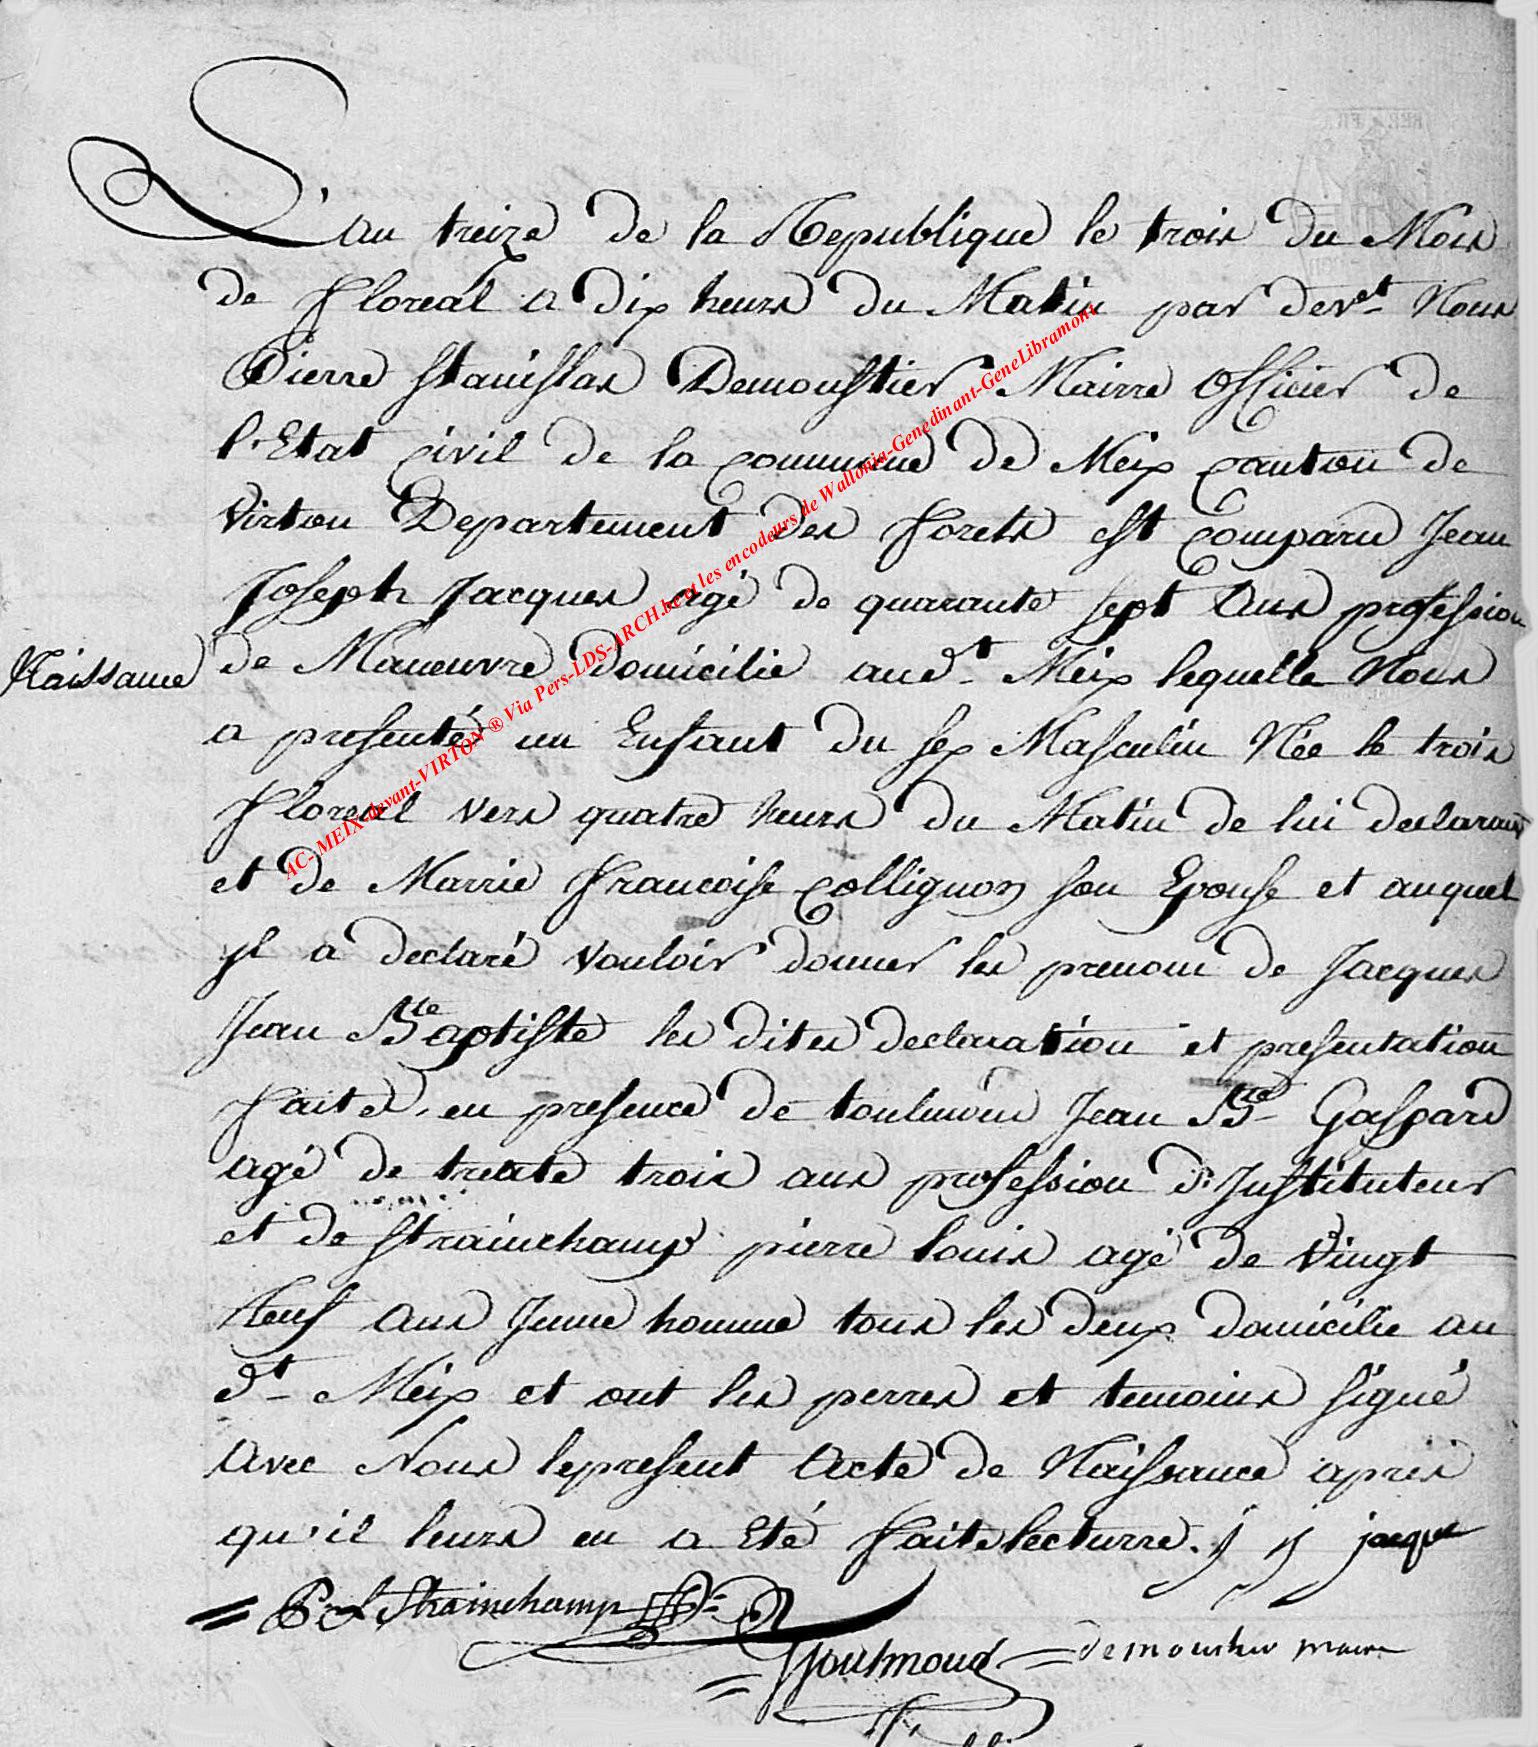 L'an treize de la Republique le trois du Mois
de floreal a dix heurs du Matin par devt Nous
Pierre Stanislas Demoustier Mairre Officier de
l'Etat Civil de la Commune de Meix Canton de
Virton Departement des forets est Comparu Jean
Joseph Jacques agé de quarante sept Ans profession
Naissance
de Maneuvre Domicilie aud-t Meix lequelle Nous
a presenté un Enfant du sex Masculin Née le trois
floreal vers quatre heurs du Matin de lui declarant
et de Marrie francoise Collignon son Epouse et auquel
jl a declaré vouloir donner les prenom de Jacques
Jean Bte aptiste les dites declaration et presentation
faites en presence de toulmoin Jean Bte Gaspard
agé de trente trois ans profession d'Instituteur
et de strainchamp pierre louis agé de Vingt
Neuf Ans Jeune homme tous les deux domicilie au
dt Meix et ont les perres et temoins signé
avec Nous lepresent Acte de Naissance apres
qu'il leurs en a Eté fait lecturre. j j jacque
= P. L Strainchamp =
= Toulmond = demoustier maire
AC-MEIX-devant-VIRTON ® Via Pers-LDS-ARCH.be et les encodeurs de Wallonia-Genedinant-GeneLibramont